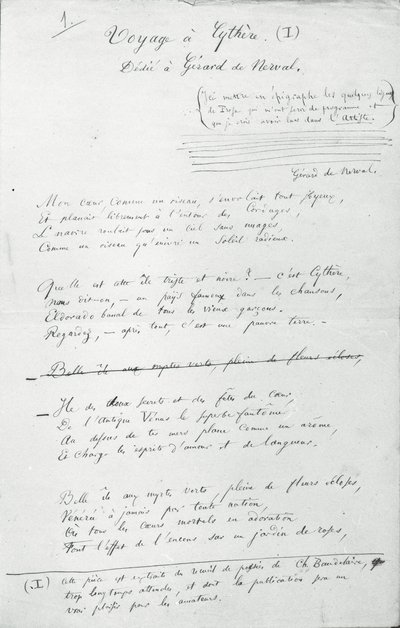 1.
Voyage à Cythère. (I)
Dédié à Gérard de Nerval.
(Ici mettre en épigraphe les quelques lignes
de Prose qui m'ont servi de programme et
que je crois avoir lues dans L'Artiste.
Gérard de Nerval.
Mon cœur comme un oiseau, s'envolait tout joyeux,
Et planait librement à l'entour des cordages,
Le navire roulait sous un ciel sans nuages,
Comme un oiseau qu'enivre un soleil radieux.
Quelle est cette île triste et noire ? — c'est Cythère,
nous dit-on, — un pays fameux dans les chansons,
Eldorado banal de tous les vieux garçons.
Regardez, — après tout, c'est une pauvre terre. —
— Belle île aux myrtes verts, pleine de fleurs écloses,
— Ile des doux secrets et des fêtes du cœur,
De l'antique Vénus le superbe fantôme
Au dessus de tes mers plane comme un arôme,
Et charge les esprits d'amour et de langueur.
Belle île aux myrtes verts, pleine de fleurs écloses,
Vénérée à jamais par toute nation,
Où tous les cœurs mortels en adoration
Font l'effet de l'encens sur un jardin de roses,
(I) cette pièce est extraite du recueil de poésies de Ch. Baudelaire,
trop longtemps attendu, et dont la publication sera un
vrai plaisir pour les amateurs.